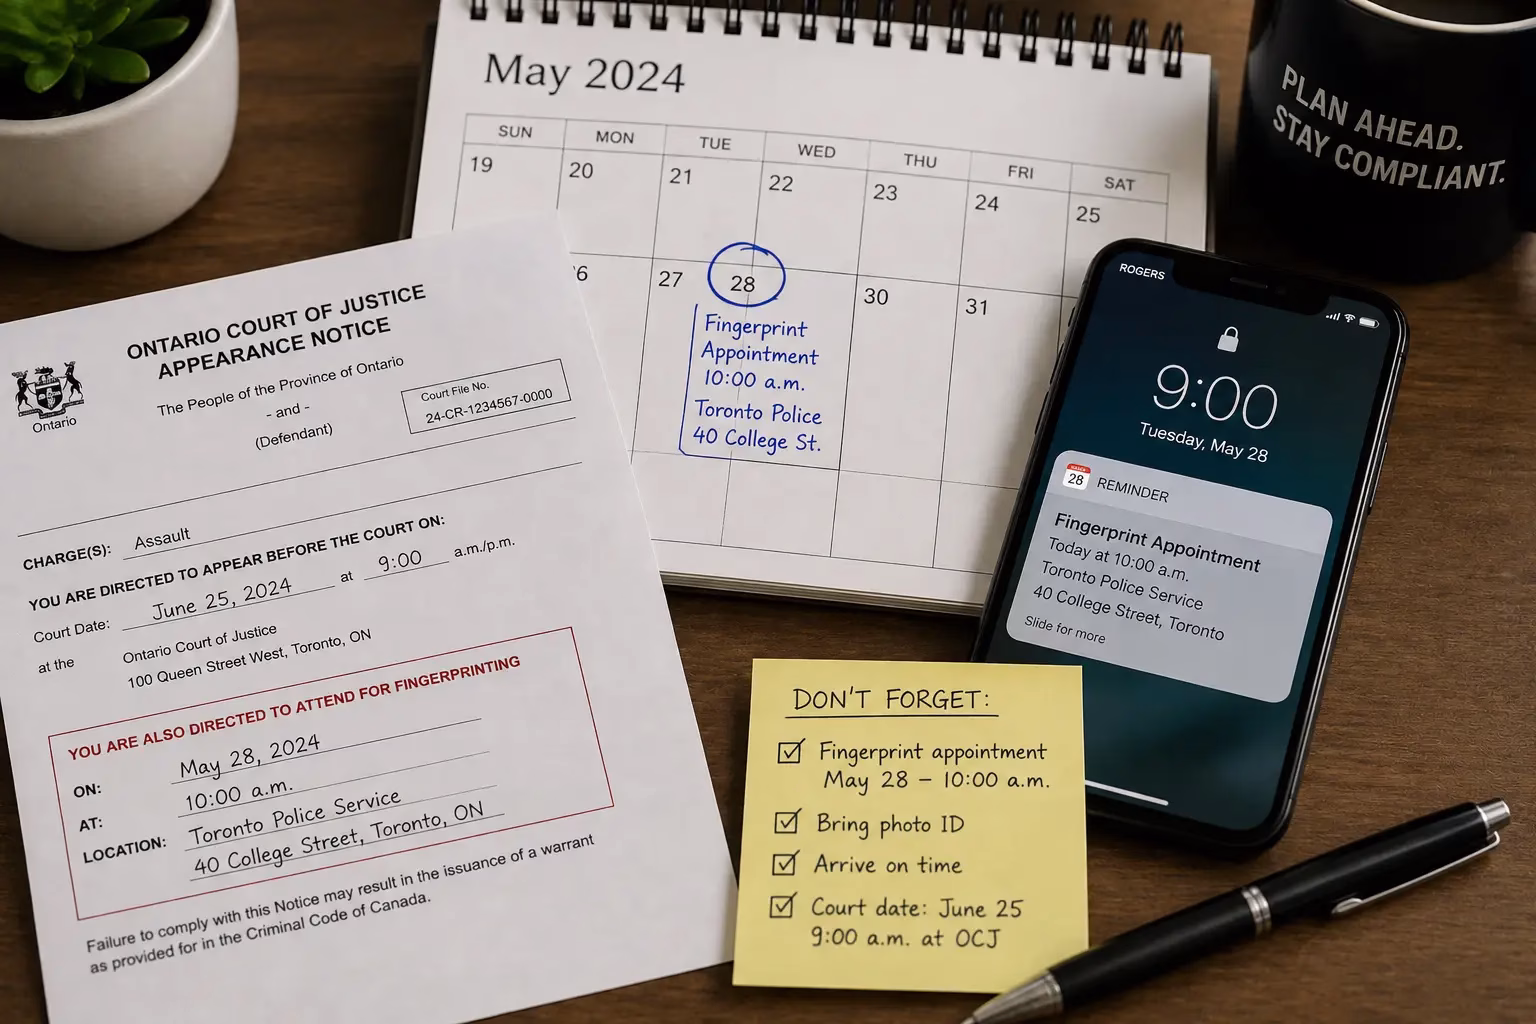 May 2024
SUN MON TUE WED THU FRI SAT
19 20 21 22 23 24 25
6 27 28 30 31
Fingerprint
Appointment
10:00 a.m.
Toronto Police
40 College St.
PLAN AHEAD.
STAY COMPLIANT.
ONTARIO COURT OF JUSTICE
APPEARANCE NOTICE
Ontario
The People of the Province of Ontario
- and -
(Defendant)
Court File No.
24-CR-1234567-0000
CHARGE(S): Assault
YOU ARE DIRECTED TO APPEAR BEFORE THE COURT ON:
Court Date: June 25, 2024 at 9:00 a.m./p.m.
at the Ontario Court of Justice
100 Queen Street West, Toronto, ON
YOU ARE ALSO DIRECTED TO ATTEND FOR FINGERPRINTING
ON: May 28, 2024
AT: 10:00 a.m.
LOCATION: Toronto Police Service
40 College Street, Toronto, ON
Failure to comply with this Notice may result in the issuance of a warrant
as provided for in the Criminal Code of Canada.
ROGERS
9:00
Tuesday, May 28
28 REMINDER
Fingerprint Appointment
Today at 10:00 a.m.
Toronto Police Service
40 College Street, Toronto
Slide for more
DON'T FORGET:
Fingerprint appointment
May 28 – 10:00 a.m.
Bring photo ID
Arrive on time
Court date: June 25
9:00 a.m. at OCJ